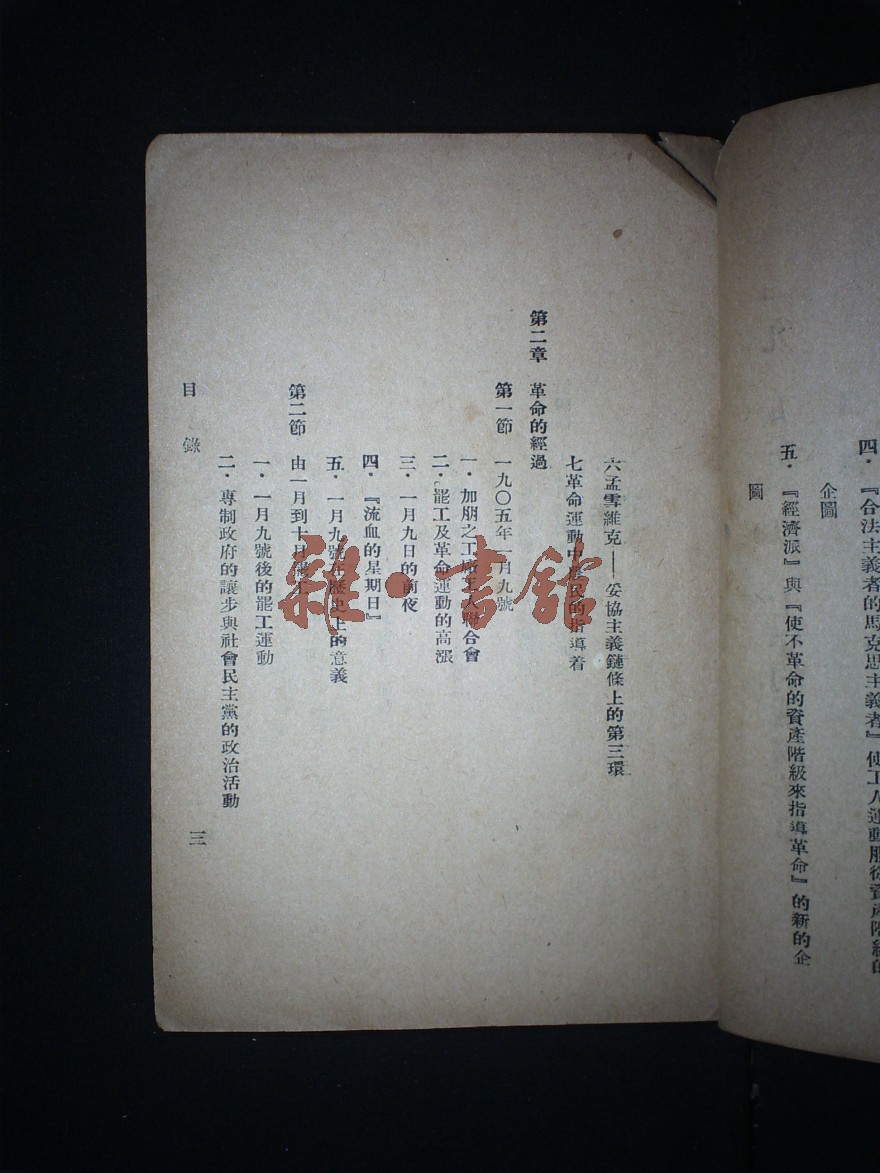 四．『合法主義者的馬克思主義者』使工人運動服從資產階級的
企圖
五．『經濟派』與『使不革命的資產階級來指導革命』的新的企
圖
六孟雪維克——妥協主義鏈條上的第三環
七革命運動中農民的指導着
第二章 革命的經過
第一節 一九〇五年一月九號
一．加朋之工廠工人聯合會
二．罷工及革命運動的高漲
三．一月九日的前夜
四．『流血的星期日』
五．一月九號在歷史上的意義
第二節 由一月到十月罷工
一．一月九號後的罷工運動
二．專制政府的讓步與社會民主黨的政治活動
目錄
三
雜·書館